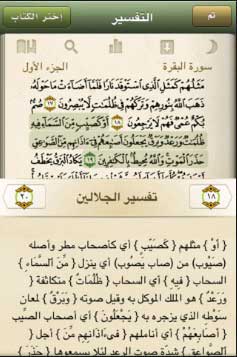 اختر الكتاب التفسير تم
سورة البقرة الجزء الأول
مَثَلُهُمْ كَمَثَلِ ٱلَّذِى ٱسْتَوْقَدَ نَارًا فَلَمَّآ أَضَآءَتْ مَا حَوْلَهُۥ
ذَهَبَ ٱللَّهُ بِنُورِهِمْ وَتَرَكَهُمْ فِى ظُلُمَٰتٍ لَّا يُبْصِرُونَ ١٧ صُمٌّۢ
بُكْمٌ عُمْىٌ فَهُمْ لَا يَرْجِعُونَ ١٨ أَوْ كَصَيِّبٍ مِّنَ ٱلسَّمَآءِ فِيهِ
ظُلُمَٰتٌ وَرَعْدٌ وَبَرْقٌ يَجْعَلُونَ أَصَٰبِعَهُمْ فِىٓ ءَاذَانِهِم مِّنَ ٱلصَّوَٰعِقِ
حَذَرَ ٱلْمَوْتِ وَٱللَّهُ مُحِيطٌۢ بِٱلْكَٰفِرِينَ ١٩ يَكَادُ ٱلْبَرْقُ يَخْطَفُ
٢٠ تفسير الجلالين ١٨
{ أَوْ } مثلهم { كَصَيِّبٍ } أي كأصحاب مطر وأصله
(صيوب) من (صاب يصوب) أي ينزل { مِّنَ ٱلسَّمَاءِ }
السحاب { فِيهِ } أي السحاب { ظُلُمَاتٌ } متكاثفة {
وَرَعْدٌ } هو الملك الموكل به وقيل صوته { وَبَرْقٌ } لمعان
سوطه الذي يزجره به { يَجْعَلُونَ } أي أصحاب الصيب
{ أَصَابِعَهُمْ } أي أناملهم { فِىٓ ءَاذَانِهِم مِّنَ } أجل {
ٱلصَّوَاعِقِ } شدة صوت الرعد لئلا يسمعوها { حَذَرَ